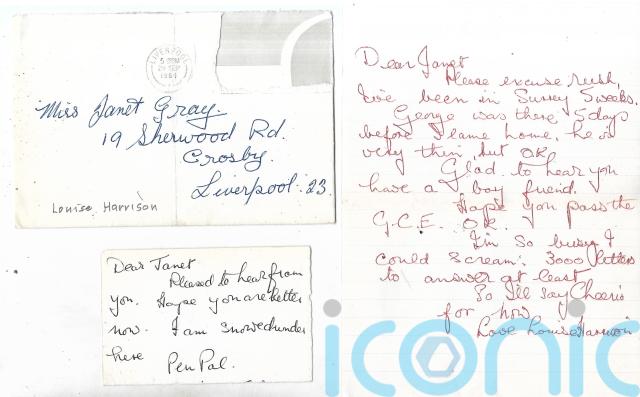 LIVERPOOL
5 30PM
SEP
Miss Janet Gray
19 Sherwood Rd.
Crosby.
Liverpool. 23.
Louise Harrison
Dear Janet
Pleased to hear from
you. Hope you are better
now. I am snowed under
here
Pen Pal.
Dear Janet
Please excuse rush,
I've been in Surrey 5 weeks.
George was there 5 days
before I came home. he is
very thin but OK
Glad to hear you
have a boy friend.
Hope you pass the
G.C.E. OK.
I'm so busy I
could scream. 3000 letters
to answer at least
So I'll say Cheerio
for now
Love Louise Harrison
iconic